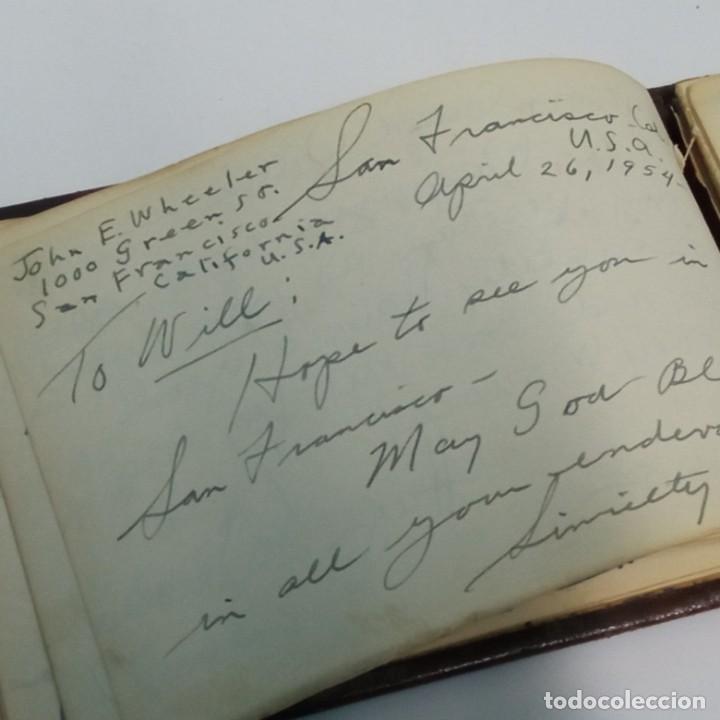 John E. Wheeler
1000 Green St.
San Francisco
California
U.S.A.
San Francisco Cal
U.S.A.
April 26, 1954
To Will:
Hope to see you in
San Francisco -
May God Bl
in all your endevo
Sincielty
todocoleccion